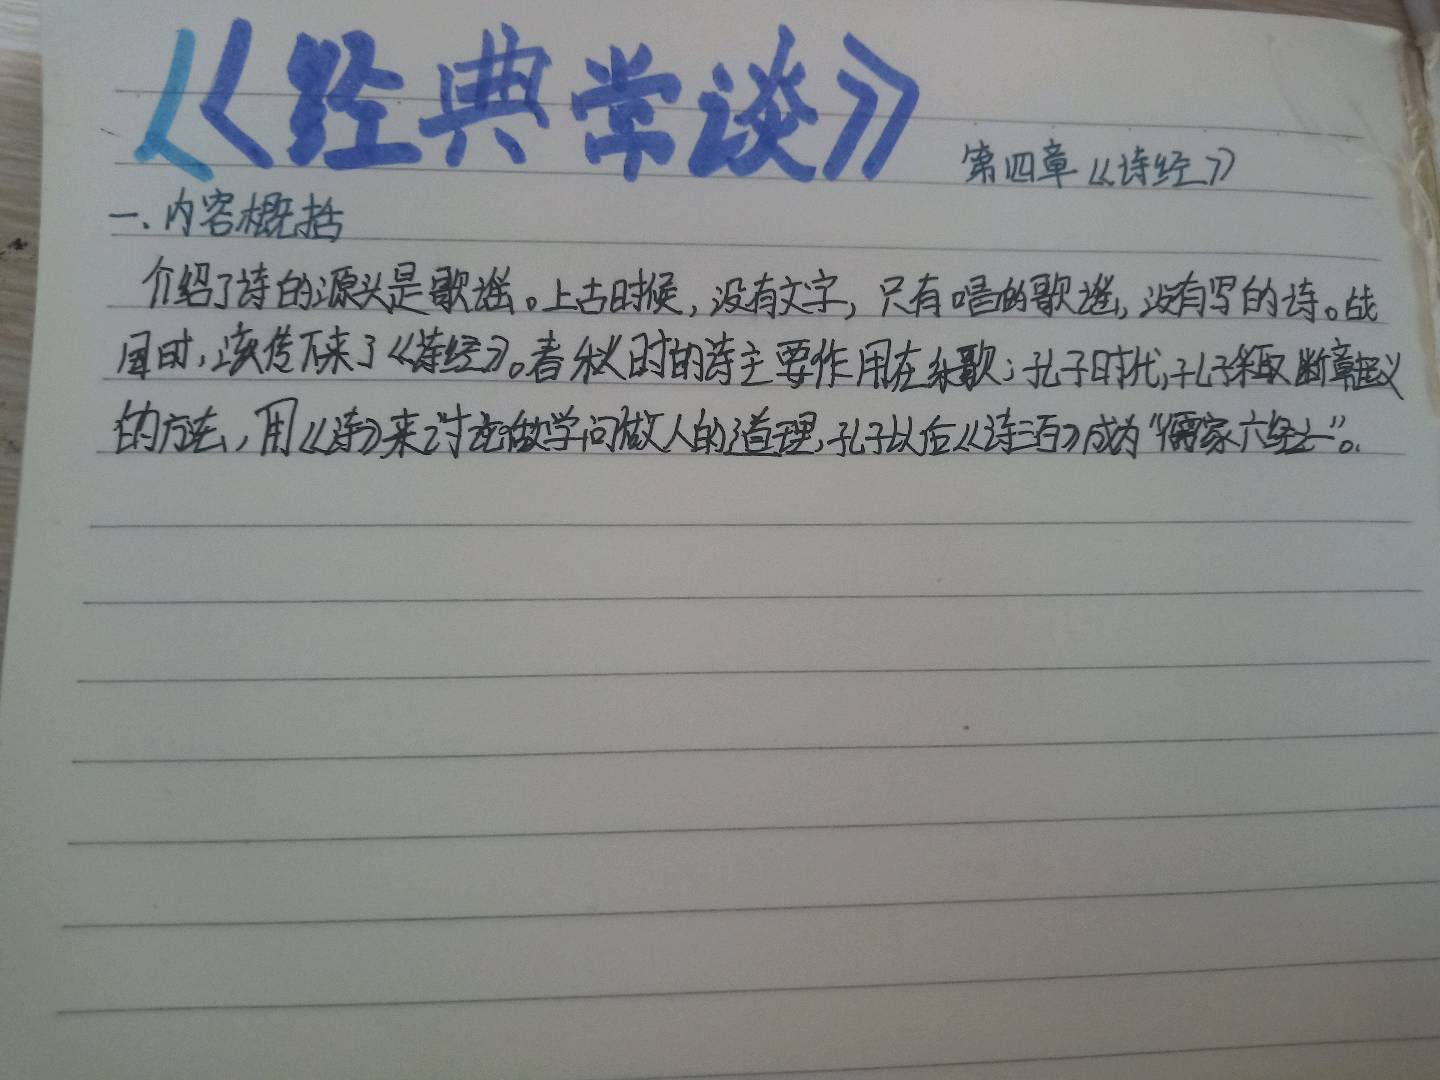 《经典常谈》 第四章《诗经》
一、内容概括
介绍了诗的源头是歌谣。上古时候，没有文字，只有唱的歌谣，没有写的诗。战
国时，流传下来了《诗经》。春秋时的诗主要作用在乐歌；孔子时代，孔子采取断章取义
的方法，用《诗》来讨论做学问做人的道理，孔子以后《诗三百》成为“儒家六经之一”。